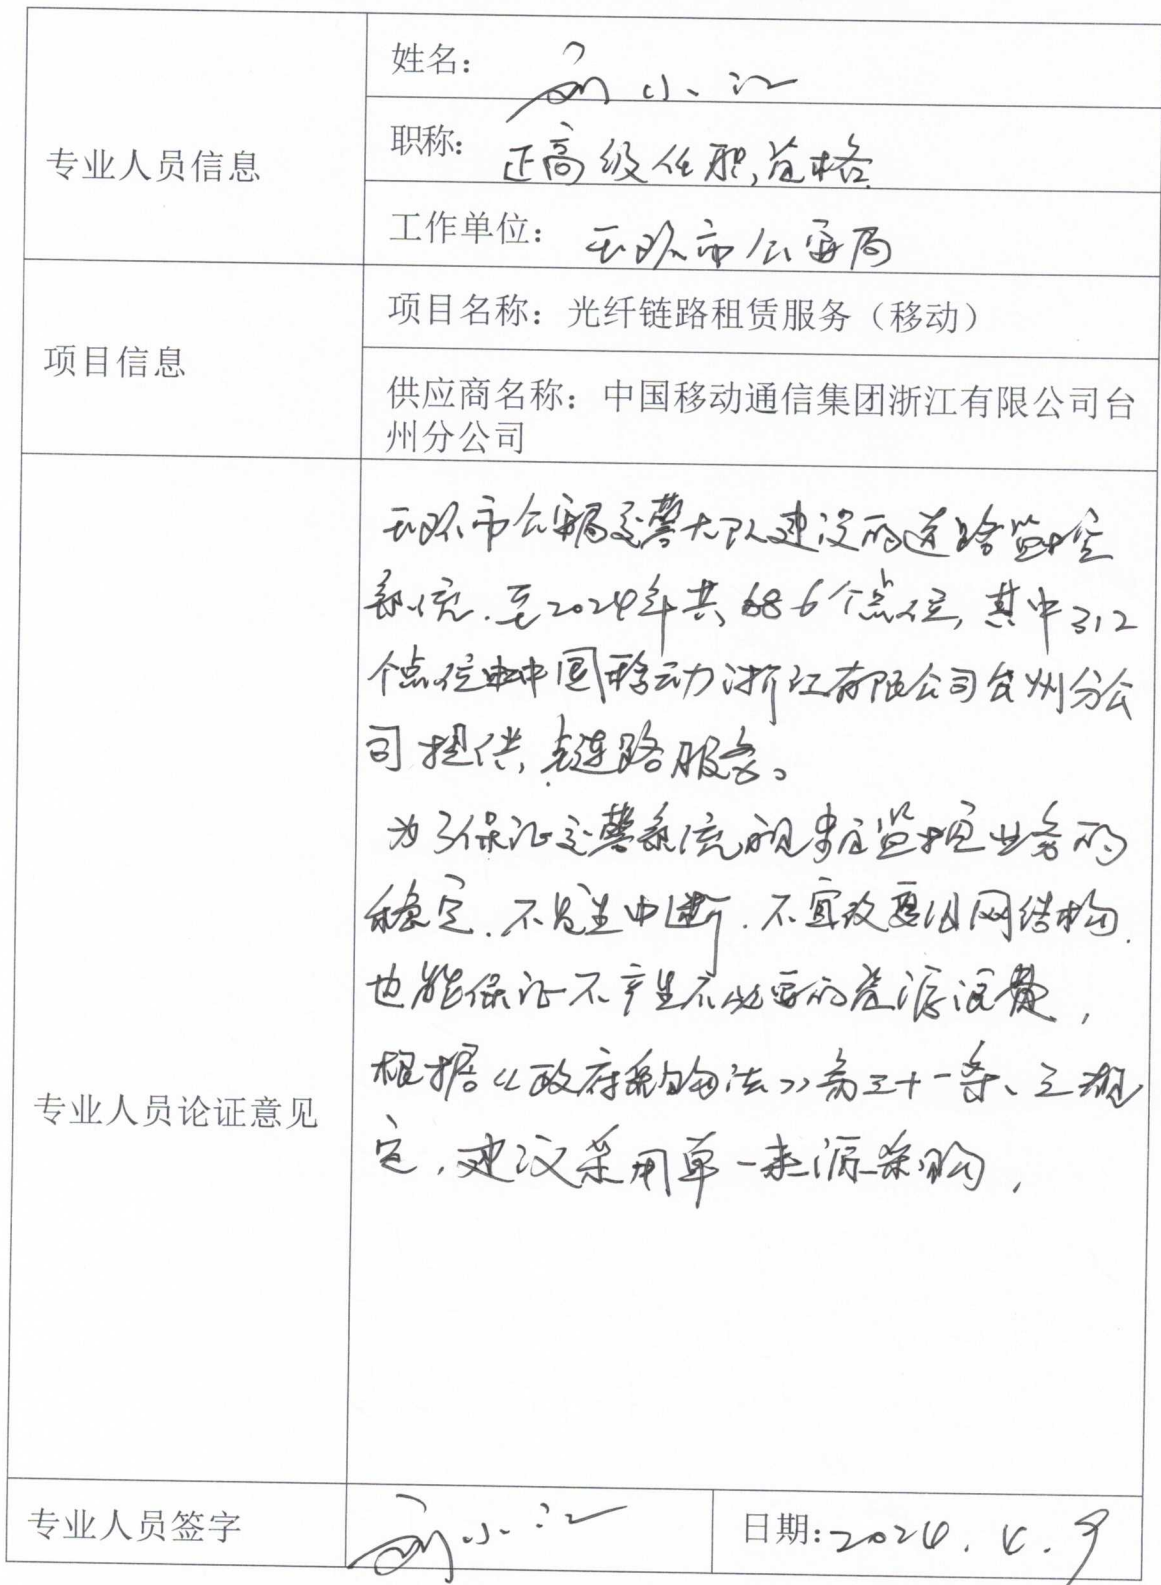 专业人员信息
姓名：
刘小江
职称：
正高级任职资格
工作单位：
玉环市公安局
项目信息
项目名称：光纤链路租赁服务（移动）
供应商名称：中国移动通信集团浙江有限公司台
州分公司
专业人员论证意见
玉环市公安局交警大队建设的道路监控
系统．至2024年共686个点位，其中312
个点位由中国移动浙江有限公司台州分公
司提供，链路服务。
为了保证交警系统视频监控业务的
稳定．不发生中断．不宜改变组网结构．
也能保证不产生不必要的资源浪费，
根据《政府采购法》第三十一条、三规
定，建议采用单一来源采购，
专业人员签字
刘小江
日期：2024．4．9